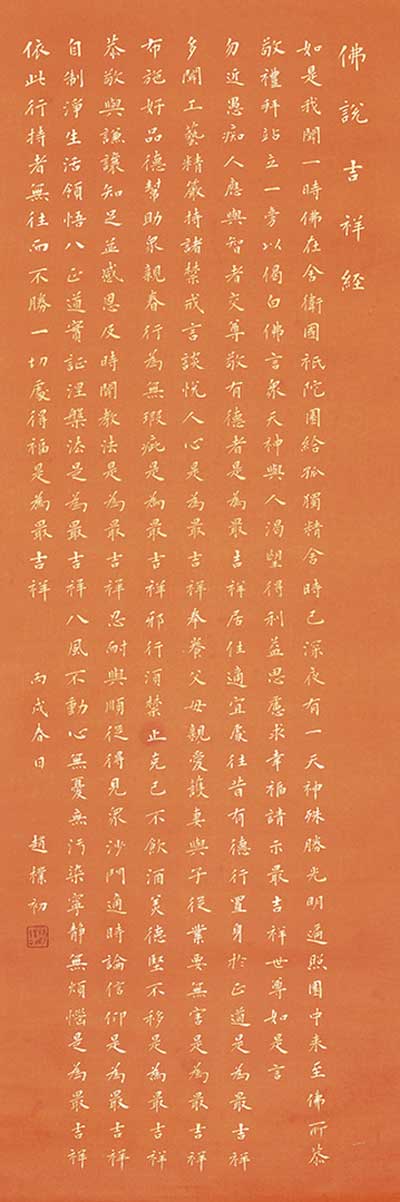 佛說吉祥经
如是我聞一時佛在舍衛國祇陀園給孤獨精舍時已深夜有一天神殊勝光明遍照園中来至佛所恭
敬禮拜站立一旁以偈白佛言眾天神與人渴望得利益思慮求幸福請示最吉祥世尊如是言
勿近愚痴人應與智者交尊敬有德者是為最吉祥居住適宜處往昔有德行置身於正道是為最吉祥
多聞工藝精嚴持諸禁戒言談悅人心是為最吉祥奉養父母親愛護妻與子從業要無害是為最吉祥
布施好品德幫助眾親眷行為無瑕疵是為最吉祥邪行須禁止克己不飲酒美德堅不移是為最吉祥
恭敬與謙讓知足並感恩及時聞教法是為最吉祥忍耐與順從得見眾沙門適時論信仰是為最吉祥
自制淨生活領悟八正道實証涅槃法是為最吉祥八風不動心無憂無污染寧靜無煩惱是為最吉祥
依此行持者無往而不勝一切處得福是為最吉祥 丙戌春日 趙樸初